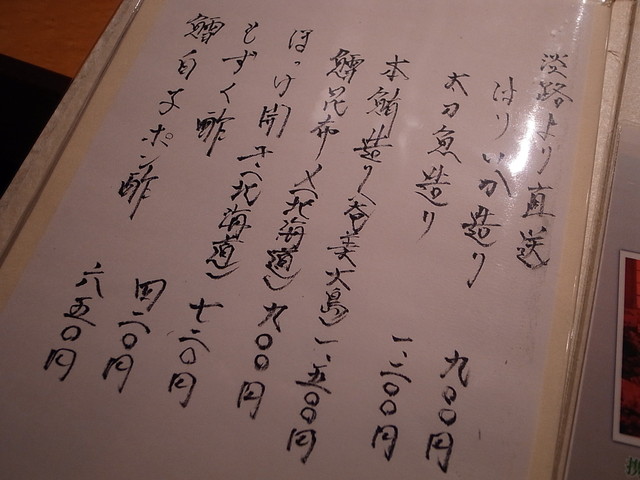 淡路より直送
はりいか造り 九〇〇円
太刀魚造り 一、二〇〇円
本鮪造り(奄美大島) 一、五〇〇円
鱈昆布〆(北海道) 九〇〇円
ほっけ開き(北海道) 七二〇円
もずく酢 四二〇円
鱈白子ポン酢 六五〇円